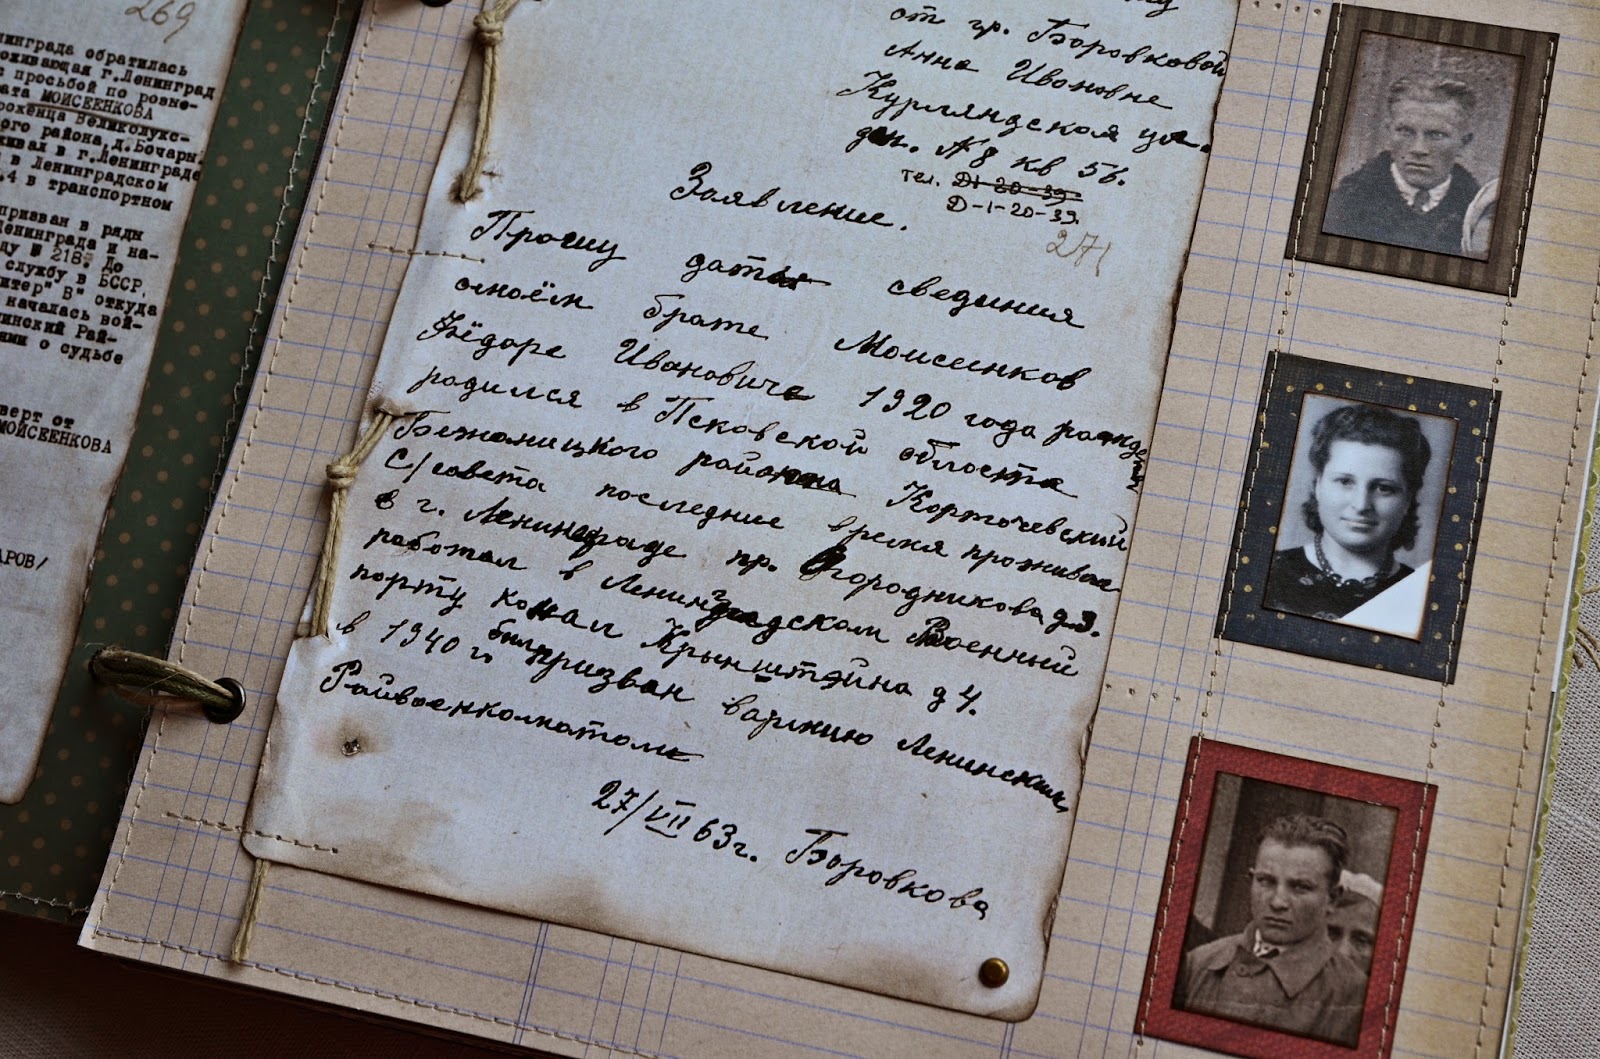 269
нинграда обратилась
оживающая г.Ленинград
с просьбой по розне-
рата МОИСЕЕНКОВА
роженца Великолукс-
ого района, д.Бочарн.
живал в г.Ленинграде
в Ленинградском
.4 в транспортном
призван в ряды
Ленинграда и на-
ду № 218. До
службу в БССР,
итер" В" откуда
началась вой-
нинский Рай-
ними о судьбе
верт от
МОИСЕЕНКОВА
АРОВ/
от гр. Боровковой
Анне Ивановне
Курляндской ул.
дом. № 8 кв 56.
тел. Д-1-20-39
Д-1-20-39.
271
Заявление.
Прошу дать свединия
омоём брате Моисеенков
Фёдоре Ивановиче 1920 года рожд
родился в Псковской области
Бежаницкого района Корточевский
С/совета последние время проживал
в г. Ленинграде пр. Огородникова д 3.
работал в Ленинградском Военный
порту канал Крынштэйна д 4.
в 1940 г. был призван вармию Ленинским
Райвоенкоматом
27/VII 63г. Боровкова